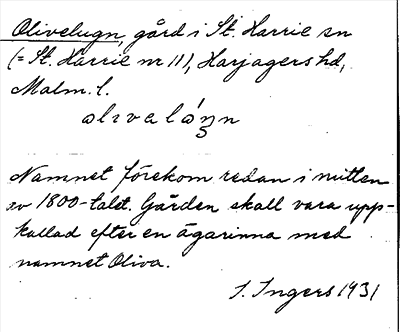 Olivelugn, gård i St. Harrie sn
(= St. Harrie nr 11), Harjagers hd,
Malm. l.
olivelóŋn
Namnet förekom redan i mitten
av 1800-talet. Gården skall vara upp-
kallad efter en ägarinna med
namnet Oliva.
I. Ingers 1931